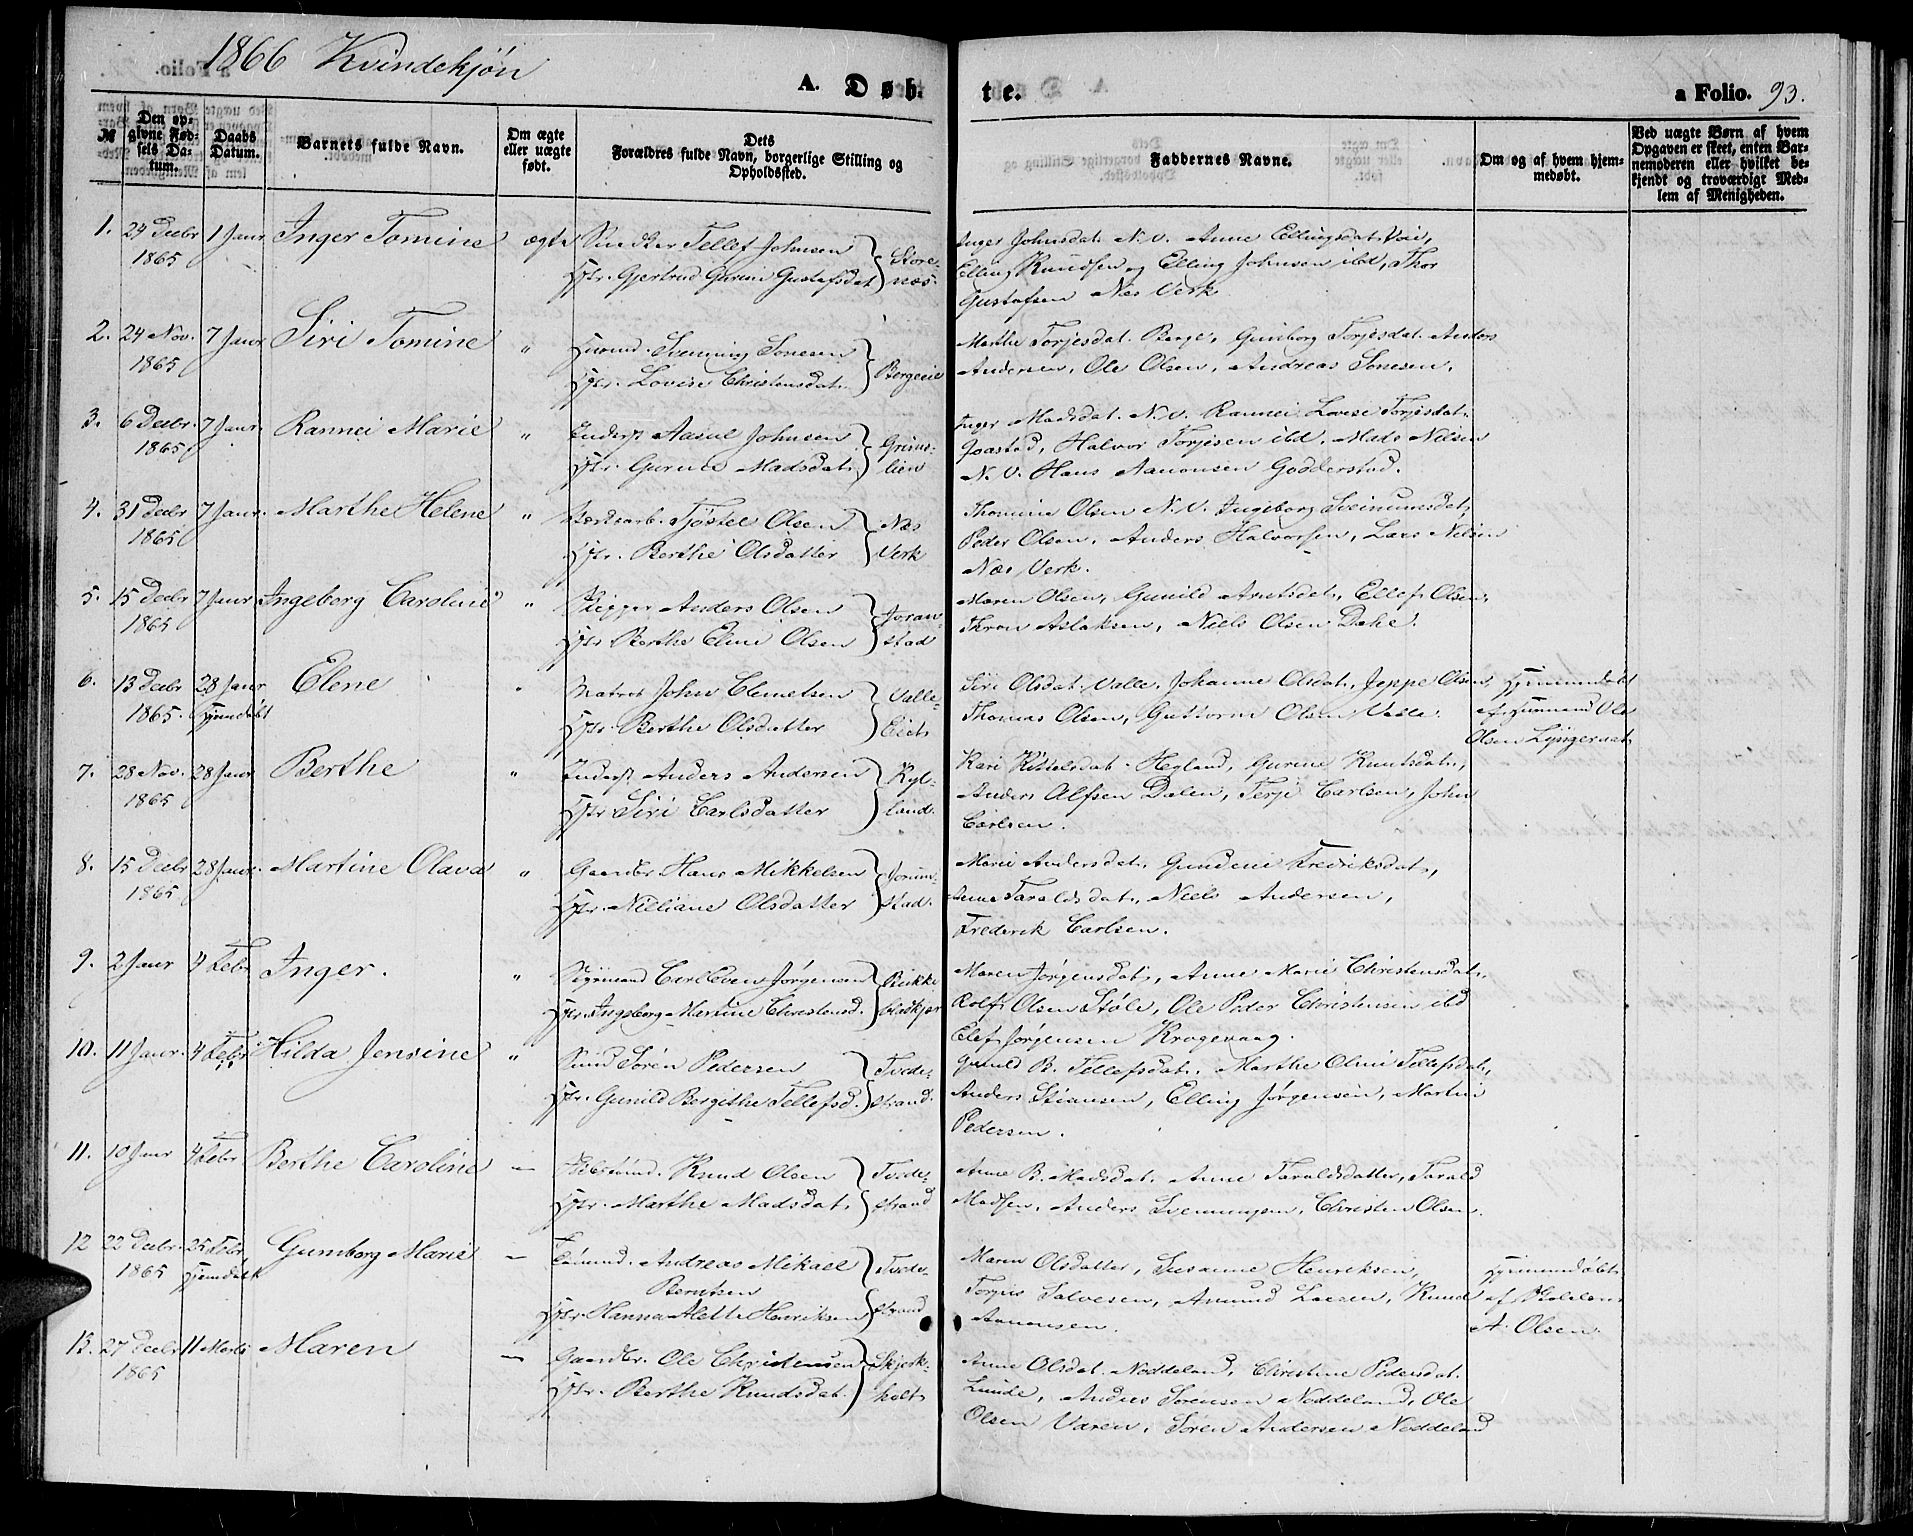 1866 Kvindekjön
A. Døb-
te.
a Folio. 93.
№
Den op-
givne Fød-
sels Da-
tum.
Daabs
Datum.
Barnets fulde Navn.
Om ægte
eller uægte
født.
Dets
Forældres fulde Navn, borgerlige Stilling og
Opholdssted.
Faddernes Navne.
Om og af hvem hjem-
medøbt.
Ved uægte Børn af hvem
Opgaven er skeet, enten Bar-
nemoderen eller hvilket be-
kjendt og troværdigt Med-
lem af Menigheden.
1. 24 Decbr 1865 1 Janr Inger Tomine ægte Snedker Tellef Johnsen
Hstr. Gjertrud Gurini Gustafsdat Store-
næs.
Inger Johnsdat. N.V. Anne Ellingsdat. Voie,
Elling Knudsen og Elling Johnsen ibd, Thor
Gustafsen Næs Verk
2. 24 Nov. 1865 7 Janr Siri Tomine " Svenning Sonesen
Hstr. Lovise Christensdat. Bergeeie
Marthe Torjesdat. Berge, Gunborg Torjesdat. Anders
Andersen, Ole Olsen, Andreas Sonesen.
3. 6 Decbr 1865 7 Janr. Rannei Marie " Inderst Johnsen
Hstr. Gurine Madsdat. Grims-
lien
Inger Madsdat. N.V. Rannei Lovise Torjesdat.
Goastad, Halvor Torjesen ibd. Mads Nilsen
N.V. Hans Aanonsen Godderstad.
4. 31 Decbr 1865 7 Janr. Marthe Helene " Tjöstel Olsen
Hstr. Berthe Olsdatter Næs
Verk
Thomine Olsen N.V. Ingeborg Sveinunsdat.
Peder Olsen, Anders Halvorsen, Lars Nilsen
Næs Verk.
5. 15 Decbr 1865 7 Janr Ingeborg Caroline " Rigger Anders Olsen
Hstr Berthe Eline Olsen Joran-
stad
Maren Olsen, Gunild Arntsdat, Ellef Olsen,
Thron Aslaksen, Niels Olsen Dahl.
6. 13 Decbr 1865. 28 Janr Hjemdöbt Elene " Matros John Clemetsen
Hstr. Berthe Olsdatter Valle-
Eiet
Siri Olsdat. Valle, Johanne Olsdat, Jeppe Olsen,
Thomas Olsen, Guttorm Olsen Valle.
Hjemmedöbt
af Gaarmand Ole
Olsen
7. 28 Nov. 1865 28 Janr Berthe " Inderst Anders Andersen
Hstr Siri Carlsdatter Ryl-
land.
Kari Kittelsdat. Hegland, Gurine Knutsdat,
Anders Alfsen Dalen, Terje Carlsen, John
Carlsen.
8. 15 Decbr 1865 28 Janr. Martine Olava " Gaardbr. Hans Mikkelsen
Hstr. Nilliane Olsdatter Jorun-
stad.
Marie Andersdat, Gundine Fredriksdat,
Anne Taraldsdat, Niels Andersen,
Frederik Carlsen.
9. 2 Janr 4 Febr Inger. " Styrmand Carl Even Jörgensen
Hstr. Ingeborg Martine Christensd.
Maren Jörgensdat, Anne Marie Christensdat.
Rolf Olsen Støle, Ole Peder Christensen ibd
Elef Jörgensen Krogevaag.
10. 11 Janr. 4 Febr. Hilda Jensine " Smed Sören Pedersen
Hstr. Gunild Bergithe Tellefsd. Tvede-
strand.
Gunild B. Tellefsdat. Marthe Oline Tellefsdat,
Anders Stiansen, Elling Jörgensen, Martin
Pedersen.
11. 10 Janr 4 Febr Berthe Caroline — Knud Olsen
Hstr. Marthe Madsdat. Tvede-
strand
Anne B. Madsdat. Anne Taraldsdatter, Tarald
Madsen, Anders Svenningsen, Christen Olsen.
12 22 Decbr. 1865 25 Febr. Hjemdöbt Gunborg Marie — Andreas Mikael
Berntsen
Hstr Hanna Alette Henriksen Tvede-
strand
Maren Olsdatter, Susanne Henriksen,
Torjus Salvesen, Amund Larsen, Knud
Aanonsen.
Hjemmedöbt
af
A. Olsen.
13. 27 Decbr 1865 11 Marts Maren — Gaardbr. Ole Christensen
Hstr. Berthe Knudsdat. Skjerk-
holt
Anne Olsdat. Noddeland, Christine Pedersdat.
Lunde, Anders Sörensen Noddeland, Ole
Olsen Varen, Sören Andersen Noddeland